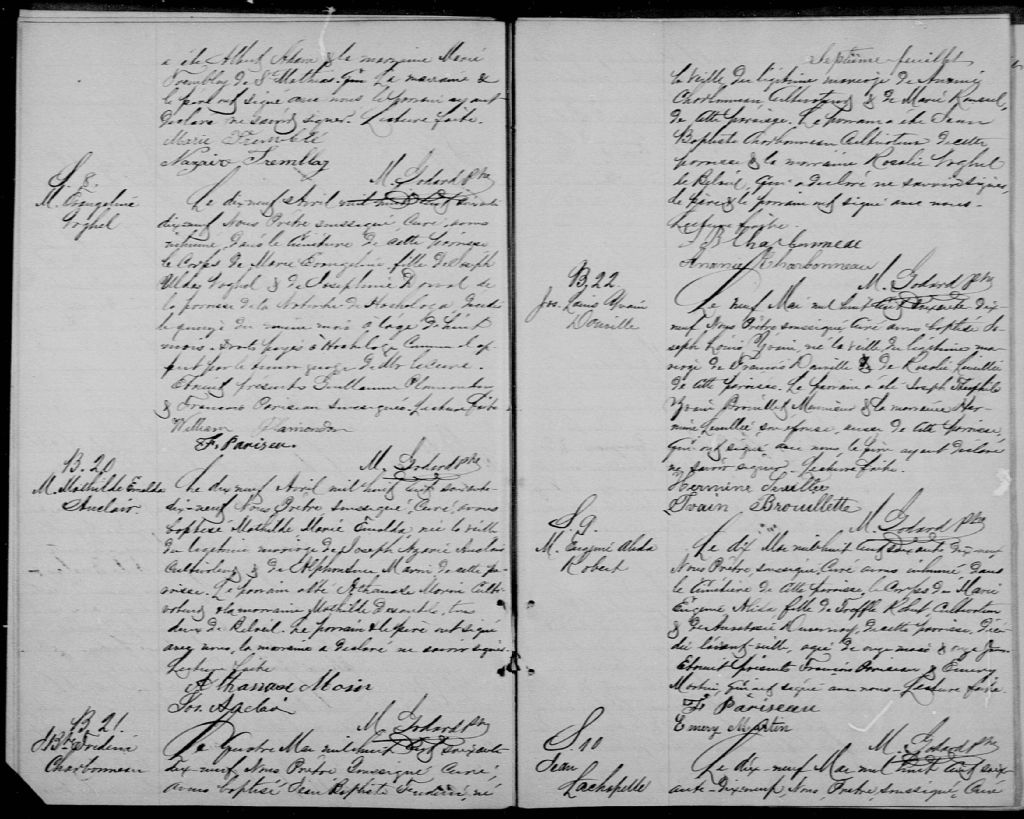 a été Albert Adam & la marraine Marie
Tremblay de St Mathias. Qui La marraine &
le père ont signé avec nous le parrain ayant
déclaré ne savoir signer. Lecture faite.
Marie Tremblé
Nazaire Tremblay
M. Godard Ptre
S. 8.
M. Evangeline
Voghel
Le dix neuf Avril mil huit cent soixante
dix neuf Nous Prêtre soussigné, Curé, avons
inhumé, dans le Cimetière de cette paroisse
le Corps de Marie Evangeline fille de Joseph
Voghel & de Josephine
la paroisse de la Nativité de Hochelaga, décédé
le quinze du même mois à l'âge de huit
mois. Droits payés à Hochelaga Comme il ap
pert par le
Etaient présents Guillaume Plamondon
& François Pariseau soussignés. Lecture faite
William Plamondon
F. Pariseau
M. Godard ptre
B. 20
M. Mathilde Exalda
Auclair
Le dix neuf Avril mil huit cent soixante
dix-neuf Nous Prêtre soussigné, Curé avons
baptisé Mathilde Marie Exalda née la veille
du légitime mariage de Joseph Auclair
Cultivateur & de Alphonsine Morin de cette pa
roisse. Le parrain a été Athanase Morin Culti
vateur & la marraine Mathilde tous
deux de Beloeil. Le parrain & le père ont signé
avec nous, la marraine a déclaré ne savoir signer.
Lecture faite
Athanase Morin
Jos. Auclair
M. Godard Ptre
B. 21.
J. Bte Fréderic
Charbonneau
Le Quatre Mai mil huit cent soixante
dix-neuf, Nous Prêtre Soussigné Curé,
avons baptisé Jean Baptiste Frederic, né
Septième feuillet
la veille du légitime mariage de Ananie
Charbonneau Cultivateur & de Marie
de cette paroisse. Le parrain a été Jean
Baptiste Charbonneau Cultivateur de cette
paroisse & la marraine Rosalie Voghel
de Beloeil, Qui a déclaré ne savoir signer,
le père & le parrain ont signé avec nous.
Lecture faite.
J B Charbonneau
Ananie Charbonneau
M. Godard Ptre
B. 22
Jos. Louis Yvain
Douville
Le neuf Mai mil huit cent soixante dix
neuf Nous Prêtre soussigné, Curé avons baptisé Jo
seph Louis Yvain, né la veille du légitime ma
riage de Francois Douville & de Rosalie
de cette paroisse. Le parrain a été Joseph Théophile
Yvain Brouillet & la marraine Her
mine son épouse, aussi de cette paroisse,
Qui ont signé avec nous le père ayant déclaré
ne savoir signer. Lecture faite.
Hermine
Ivain Brouillette
M. Godard Ptre
S. 9.
M. Eugénie Alida
Robert
Le dix Mai mil huit cent soixante dix-neuf
Nous Prêtre, soussigné, Curé avons inhumé, dans
le Cimetière de cette paroisse, le Corps de Marie
Eugénie Alida fille de Toffle Robert Cultivateur
& de Anastasie de cette paroisse, décé
dée l'avant-veille, agée de onze mois & onze jours
Etaient présents François Pariseau & Emery
Martin, Qui ont signé avec nous. Lecture faite.
F. Pariseau
Emery Martin
M. Godard Ptre
S. 10
Jean
Lachapelle
Le dix-neuf Mai mil huit cent soix
ante-dix-neuf, Nous, Prêtre, soussigné, Curé